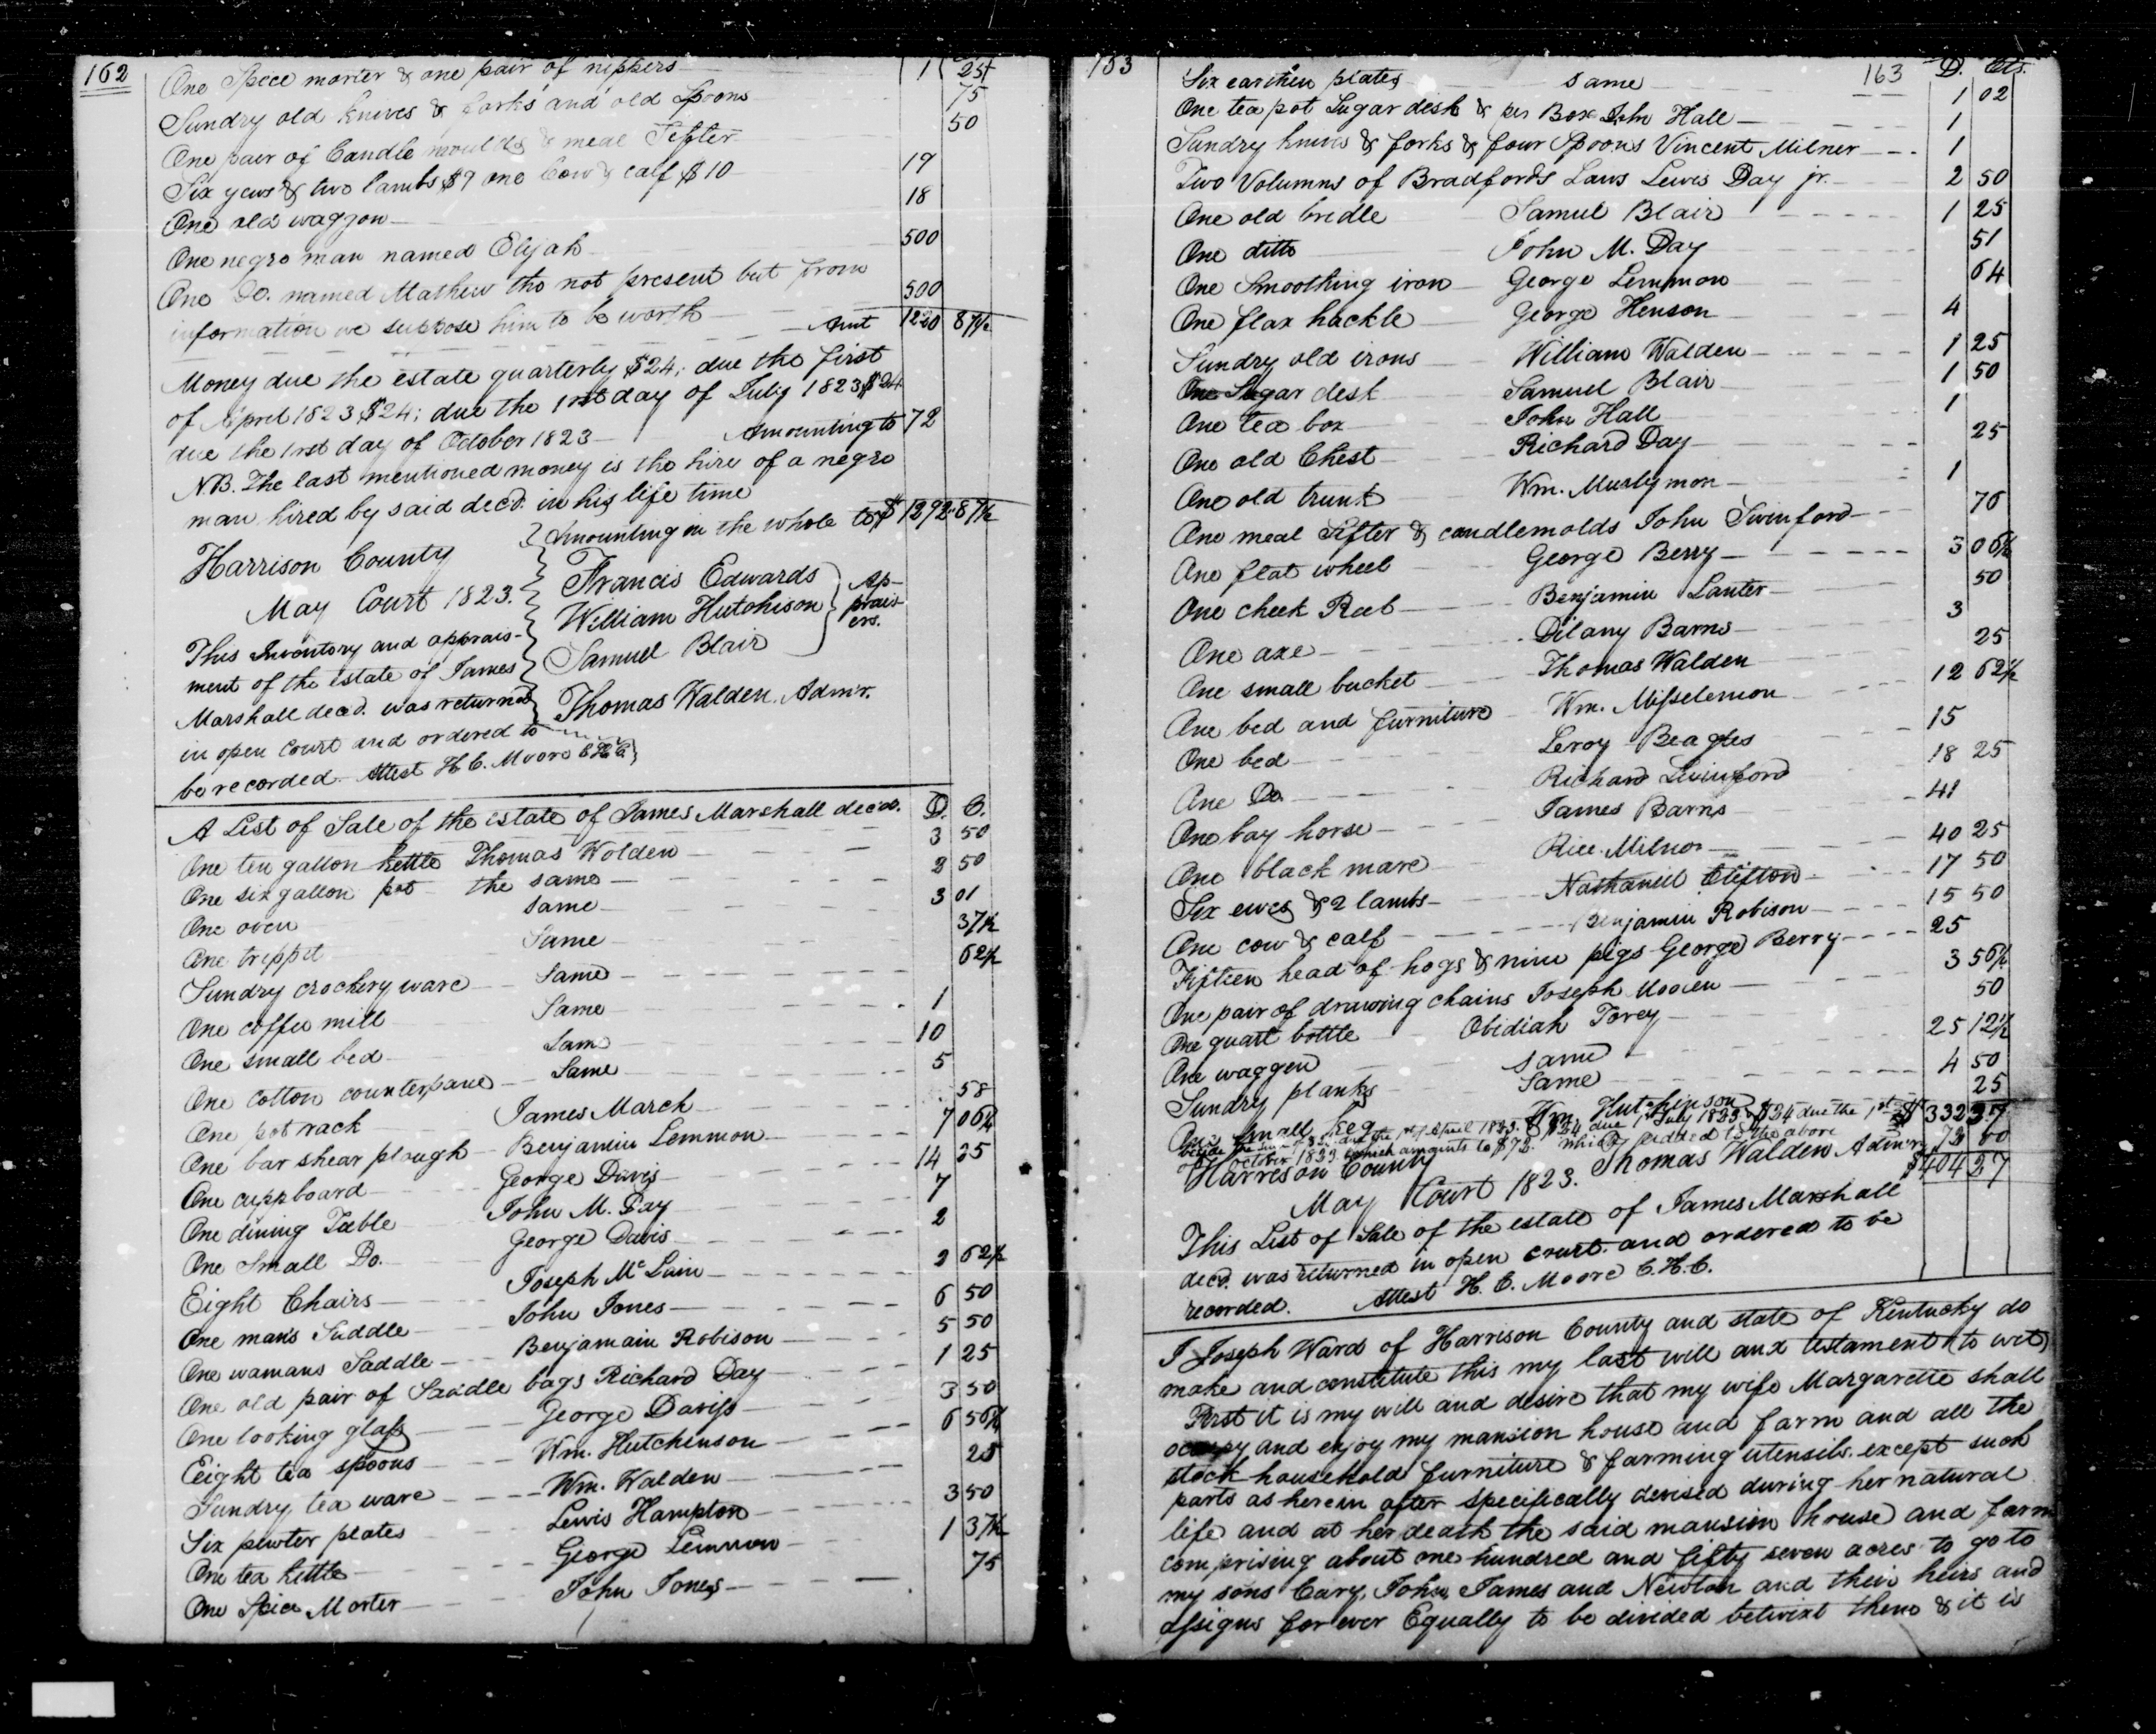 162
One Spice morter & one pair of nippers 1 25
Sundry old knives & forks and old Spoons 75
One pair of Candle moulds & meal Sifter 50
Six yews & two lambs $9 one Cow & calf $10 19
One old waggon 18
One negro man named Elijah 500
One Do. named Mathew tho not present but from
information we suppose him to be worth 500
Amt 1220 87½
Money due the estate quarterly $24; due the first
of April 1823 $24; due the 1rst day of July 1823 $24
due the 1rst day of October 1823 Amounting to 72
NB. The last mentioned money is the hire of a negro
man hired by said decd. in his life time
Amounting in the whole to $1292.87½
Harrison County
May Court 1823.
This Inventory and apprais-
ment of the estate of James
Marshall decd. was returned
in open court and ordered to
be recorded. Attest H. C. Moore C H C
Francis Edwards
William Hutchison
Samuel Blair
Ap-
prais-
ers.
Thomas Walden. Admr.
A List of Sale of the estate of James Marshall decd. D. C.
One ten gallon kettle Thomas Wolden 3 50
One six gallon pot the same 2 50
One oven same 3 01
One trippit Same 37½
Sundry crockery ware Same 62½
One coffee mill Same 1
One small bed Same 10
One cotton counterpane Same 5
One pot rack James March 58
One bar shear plough Benjamin Lemmon 7 06¼
One cuppboard George Davis 14 25
One dining Table John M. Day 7
One Small Do. George Davis 2
Eight Chairs Joseph Mc Lain 2 62½
One mans Saddle John Jones 6 50
One womans Saddle Benjamain Robison 5 50
One old pair of Saddle bags Richard Day 1 25
One looking glass George Daviss 3 50
Eeight tea spoons Wm. Hutchinson 6 56¼
Sundry tea ware Wm. Walden 25
Six pewter plates Lewis Hampton 3 50
One tea kettle George Lemmon 1 37½
One Spice Morter John Jones 75
153 163 D. Cts.
Six earthen plates same 1 02
One tea pot Sugar dish & Box John Hall 1
Sundry knives & forks & four Spoons Vincent Milner 1
Two Volumns of Bradfords Laws Lewis Day jr. 2 50
One old bridle Samuel Blair 1 25
One ditto John M. Day 51
One Smoothing iron George Lemmon 64
One flax hackle George Henson 4
Sundry old irons William Walden 1 25
One Sugar desk Samuel Blair 1 50
One tea box John Hall 1
One old Chest Richard Day 25
One old trunk Wm. 1
One meal Sifter & candlemolds John Swinford 76
One flat wheel George Berry 3 06¼
One cheek Reel Benjamin Lanter 50
One axe Dilany Barns 3
One small bucket Thomas Walden 25
One bed and furniture Wm. Misselemon 12 62½
One bed Leroy Beagles 15
One Do. Richard 18 25
One bay horse James Barns 41
One black mare Rice Milnor 40 25
Six ewes & 2 lambs Nathaniel Clifton 17 50
One cow & calf Benjamin Robison 15 50
Fifteen head of hogs & nine pigs George Berry 25
One pair of drawing chains Joseph 3 56¼
One quart bottle Obidiah Torey 50
One waggon same 25 12½
Sundry planks Same 4 50
One small keg Wm. Hutchinson 25
$ 332 27
beside the 1st of April 1823. & $24 due 1st July 1823 & $24 due the 1st
of October 1823 which amounts to $72. which added to the above 72 00
Thomas Walden Admr. $404 27
Harrison County
May Court 1823.
This List of Sale of the estate of James Marshall
decd. was returned in open court and ordered to be
recorded. Attest H. C. Moore C. H. C.
I Joseph Ward of Harrison County and state of Kentucky do
make and constitute this my last will and testament (to wit)
First it is my will and desire that my wife Margarette shall
occupy and enjoy my mansion house and farm and all the
stock household furniture & farming utensils except such
parts as herein after specifically devised during her natural
life and at her death the said mansion house and farm
comprising about one hundred and fifty seven acres to go to
my sons Cary, John, James and Newton and their heirs and
assigns for ever Equally to be divided betwixt them & it is